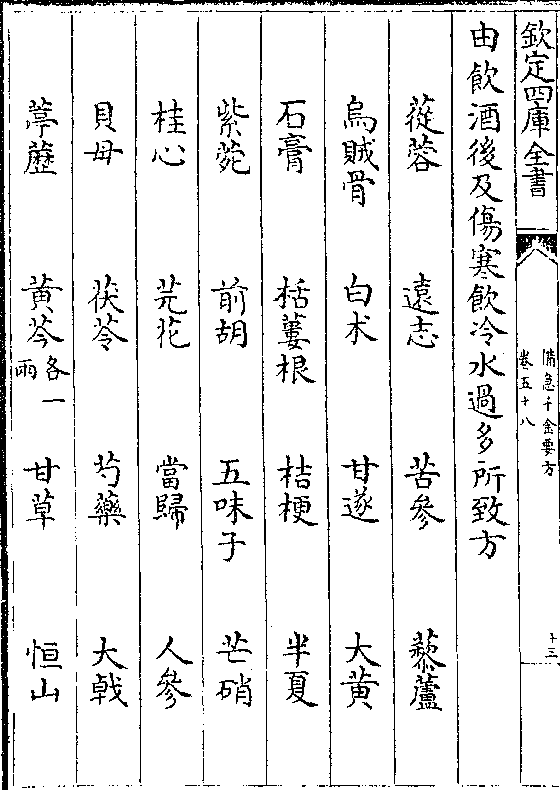 欽定四庫全書
備急千金要方
卷五十八
十三
由飲酒後及傷寒飲冷水過多所致方
蓯蓉 遠志 苦參 藜蘆
烏賊骨 白术 甘遂 大黄
石膏 栝蔞根 桔梗 半夏
紫菀 前胡 五味子 芒硝
桂心 芫花 當歸 人參
貝母 茯苓 芍藥 大戟
葶藶 黄芩各一兩 甘草 恒山